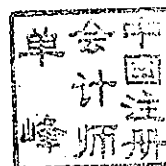 中国注册
会计师
单峰